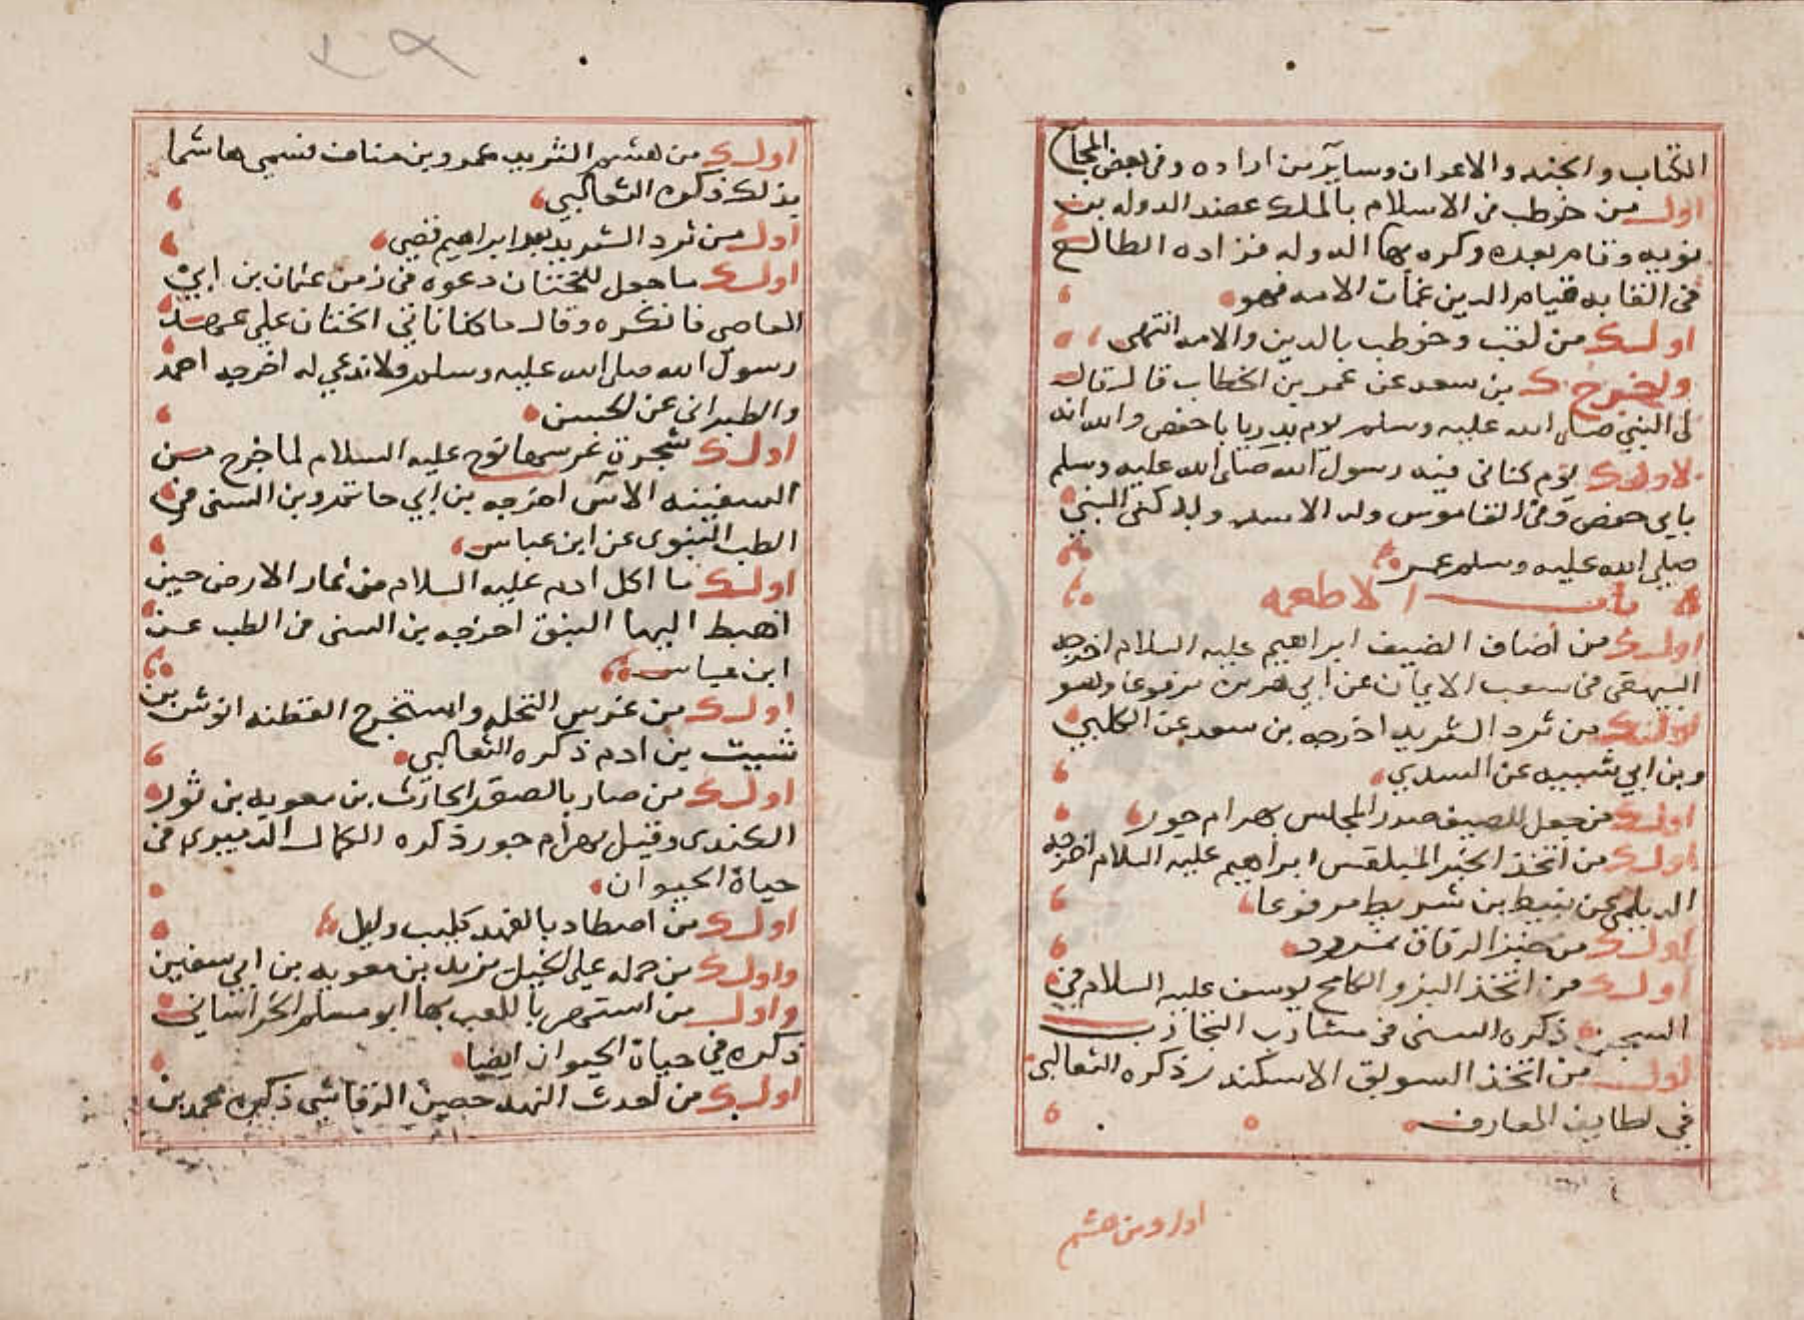 الكتاب والجند والاعوان وساير من اراده وفى بعض المجا
اول من خوطب فى الاسلام بالملك عضد الدوله بن
بويه وقام بعده وكره بها الدوله فزاده الطالع
فى القابه قيام الدين غياث الامه فهو
اول من لقب وخوطب بالدين والامه انتهى
واخرج بن سعد عن عمر بن الخطاب قال قال
لى النبي صلى الله عليه وسلم يوم بدر يابا حفص والله انه
لاول يوم كنانى فيه رسول الله صلى الله عليه وسلم
بابى حفص وفى القاموس ولد الاسد وبه كنى النبي
صلى الله عليه وسلم عمر
باب الاطعمه
اول من اضاف الضيف ابراهيم عليه السلام اخرجه
البيهقى فى شعب الايمان عن ابي هريره مرفوعا وهو
اول من ثرد الثريد اخرجه بن سعد عن الكلبي
وبن ابي شيبه عن السدي
اول من جعل للضيف صدر المجلس بهرام جور
اول من اتخذ الخبز المبلقس ابراهيم عليه السلام اخرجه
الديلمى عن نبيط بن شريط مرفوعا
اول من خبز الرقاق نمرود
اول من اتخذ البز والكامخ يوسف عليه السلام في
السجن ذكره السنى فى
اول من اتخذ السويق الاسكندر ذكره الثعالبي
في لطايف المعارف
اول من هشم
اول من هشم الثريد عمرو بن مناف فسمى هاشما
بذلك ذكره الثعالبي
اول من ثرد الثريد بعد ابراهيم قصي
اول ما جعل للختان دعوه فى زمن عثمان بن ابي
العاصى فانكره وقال ما كنا ناتي الختان على عهد
رسول الله صلى الله عليه وسلم ولا ندعى له اخرجه احمد
والطبرانى عن الحسن
اول شجرة غرسها نوح عليه السلام لما خرج من
السفينه الاس اخرجه بن ابي حاتم وبن السنى فى
الطب النبوى عن ابن عباس
اول ما اكل ادم عليه السلام من ثمار الارض حين
اهبط اليها النبق اخرجه بن السنى فى الطب عن
ابن عباس
اول من غرس النخله واستخرج القطنه انوش بن
شيث بن ادم ذكره الثعالبي
اول من صار بالصقر الحارث بن معويه بن ثور
الكندى وقيل بهرام جور ذكره الكمال الدميرى فى
حياة الحيوان
اول من اصطاد بالفهد كليب وايل
واول من حمله على الخيل يزيد بن معويه بن ابي سفين
واول من استهر باللعب بها ابو مسلم الخراساني
ذكره في حياة الحيوان ايضا
اول من احدث النهد حصين الرقاشى ذكره محمد بن